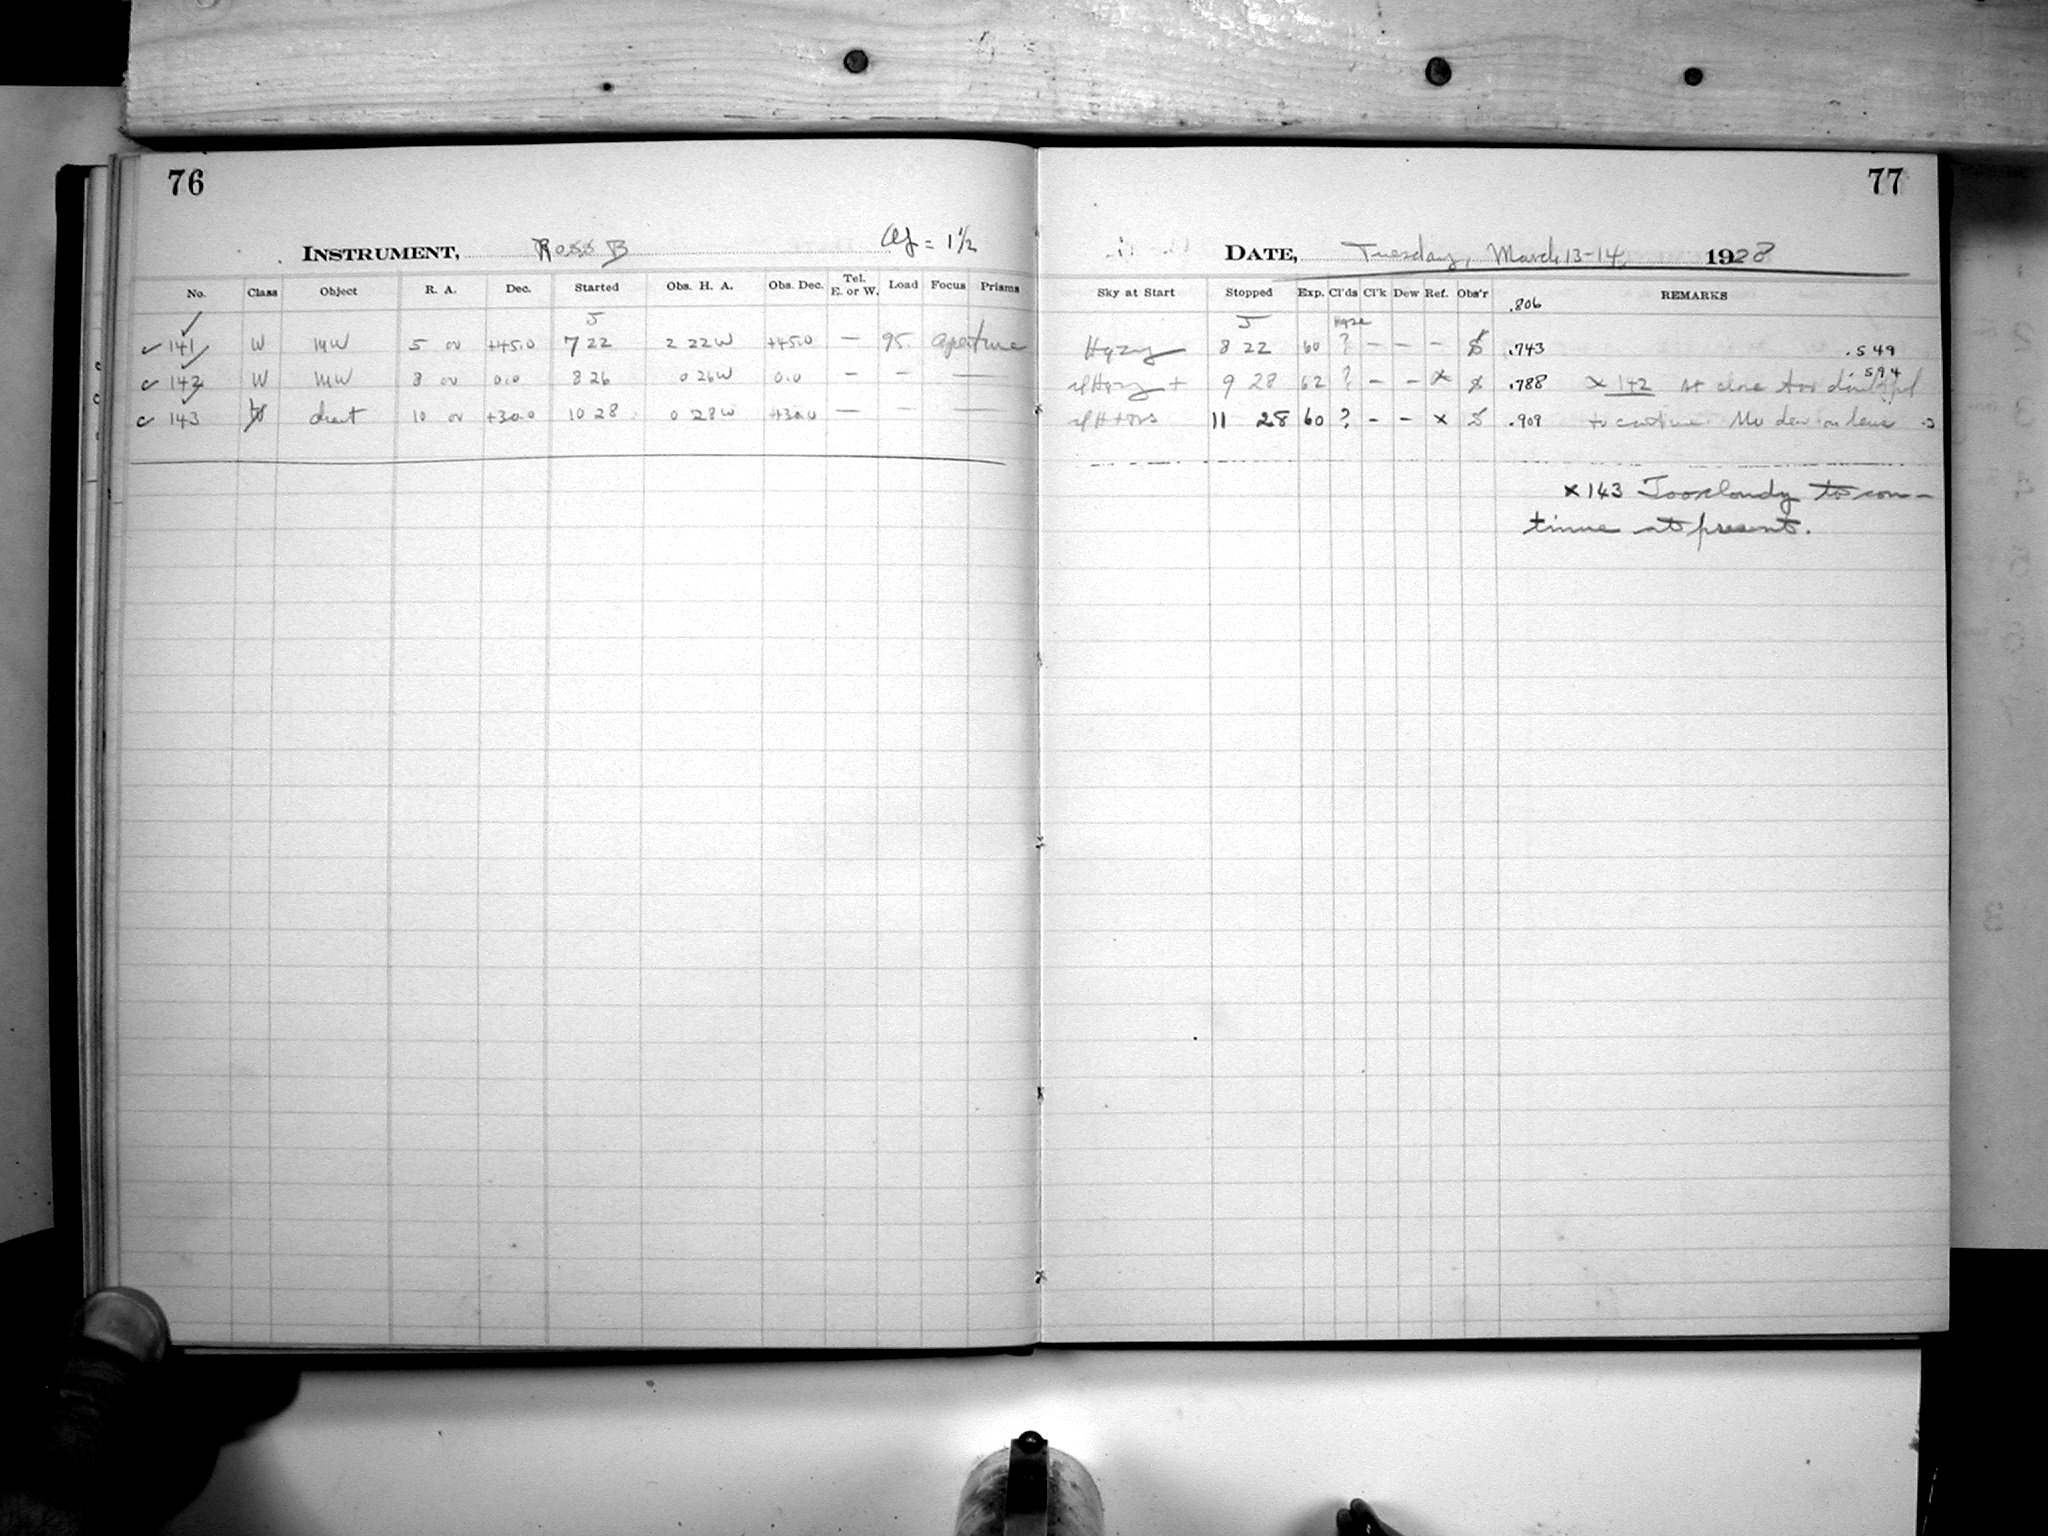 76
INSTRUMENT, Ross B = 1½
No. Class Object R. A. Dec. Started Obs. H. A. Obs. Dec. Tel. E. or W. Load Focus Prisms
141 W MW 5 00 +45.0 7 22 2 22 W +45.0 — 95. aperture
142 W MW 8 00 0.0 8 26 0 26 W 0.0 — — —
143 10 00 +30.0 10 28 0 28 W +30.0 — — —
77
DATE, Tuesday, March 13-14, 1928
Sky at Start Stopped Exp. Cl'ds Cl'k Dew Ref. Obs'r .806 REMARKS
Haze
Hazy 8 22 60 ? — — — .743 .549
9 28 62 ? — — x .788 x 142 At close too doubtful .594
11 28 60 ? — — x .909 to continue. No dew on lens
x 143 Too cloudy to con-
tinue at present.